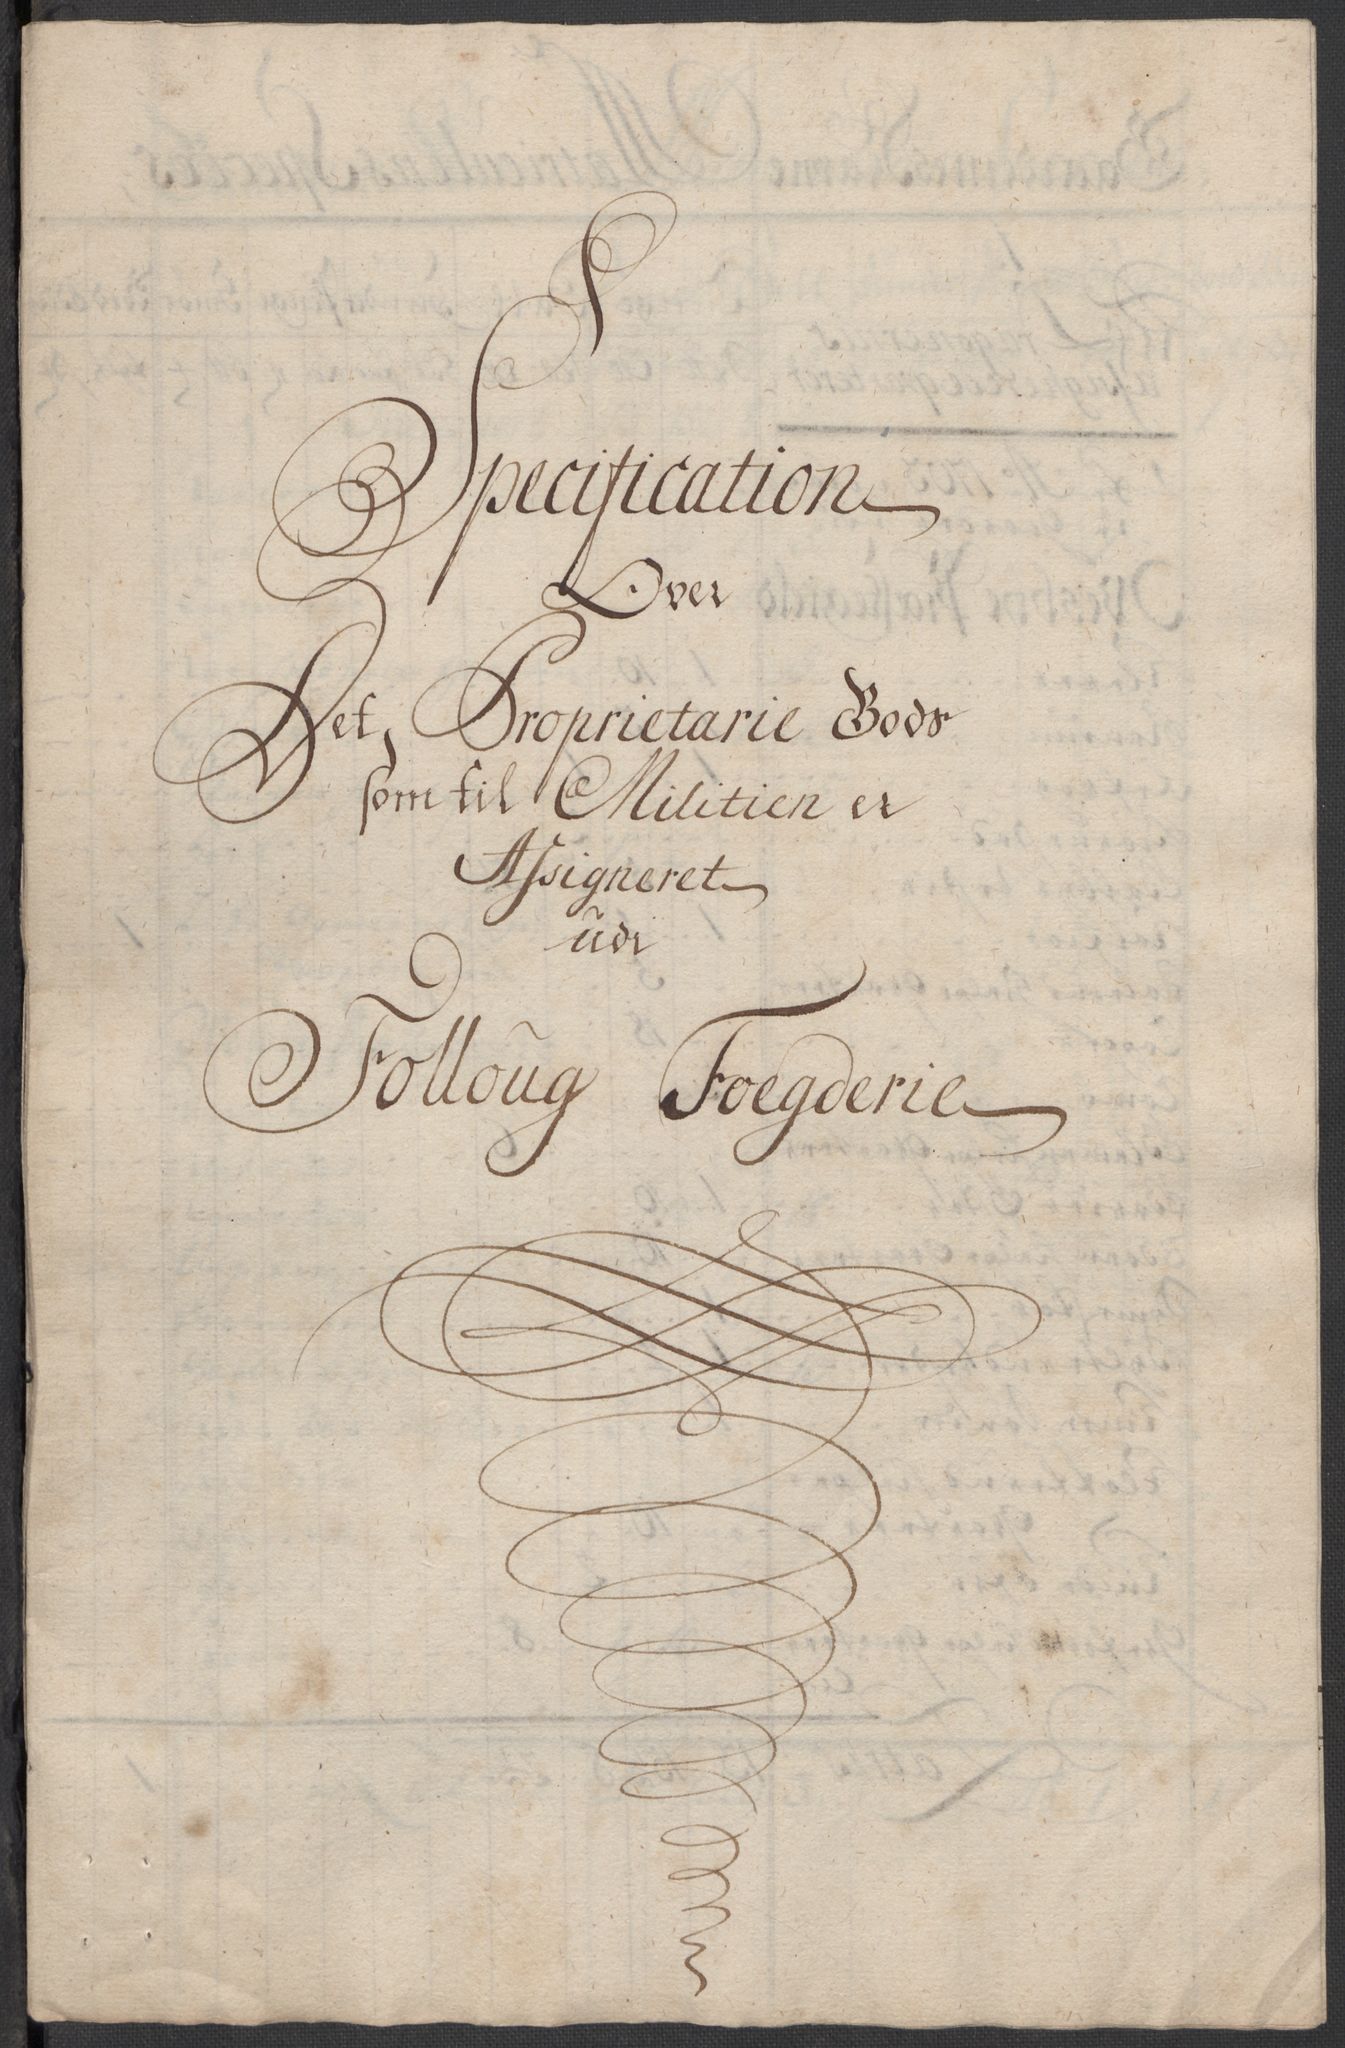 Specification
Over
Det, Proprietarie Gods
som til Militien er
Assigneret
udi
Folloug Foegderie